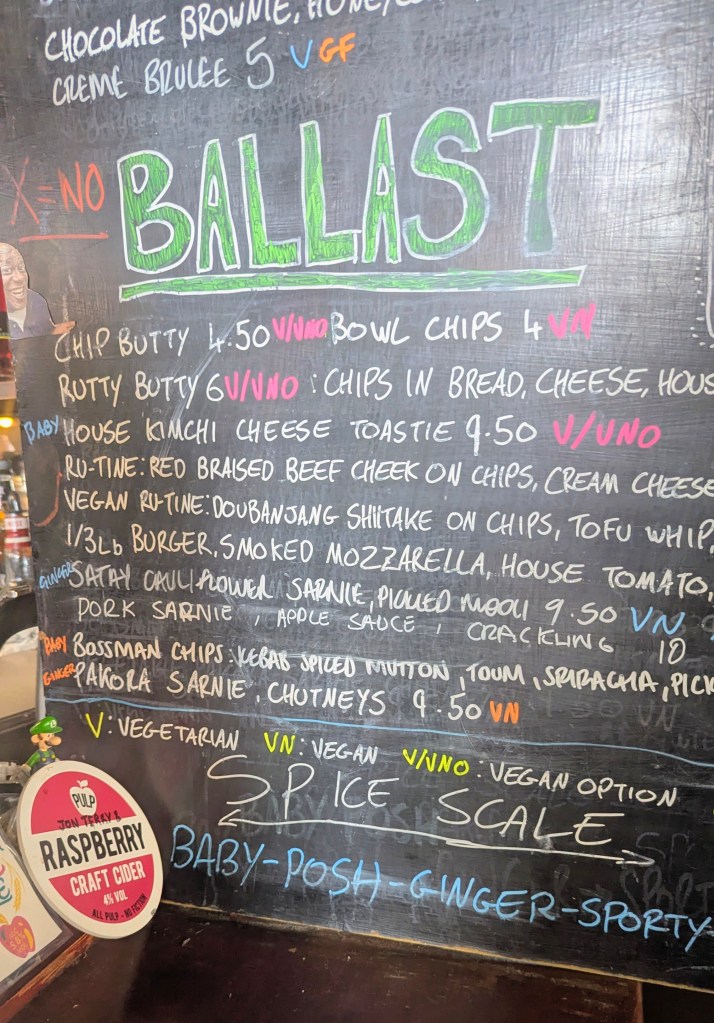 CHOCOLATE BROWNIE, HONEYCO
CREME BRULEE 5 V GF
X = NO
BALLAST
CHIP BUTTY 4.50 V/VNO BOWL CHIPS 4 VN
RUTTY BUTTY 6 V/VNO : CHIPS IN BREAD, CHEESE, HOUS
BABY HOUSE KIMCHI CHEESE TOASTIE 9.50 V/VNO
RU-TINE: RED BRAISED BEEF CHEEK ON CHIPS, CREAM CHEESE
VEGAN RU-TINE: DOUBANJANG SHIITAKE ON CHIPS, TOFU WHIP,
1/3Lb BURGER, SMOKED MOZZARELLA, HOUSE TOMATO,
GINGER SATAY CAULIFLOWER SARNIE, PICKLED MOOLI 9.50 VN
PORK SARNIE, APPLE SAUCE, CRACKLING 10
BABY BOSSMAN CHIPS: KEBAB SPICED MUTTON, TOUM, SRIRACHA, PICK
GINGER PAKORA SARNIE, CHUTNEYS 9.50 VN
V: VEGETARIAN VN: VEGAN V/VNO: VEGAN OPTION
SPICE SCALE
BABY-POSH-GINGER-SPORTY-
PULP
JON TERRY'S
RASPBERRY
CRAFT CIDER
4% VOL
ALL PULP - NO FICTION